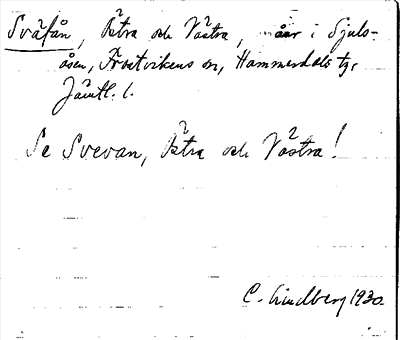 Sväfån, Östra och Västra, åar i Sjuls-
åsen, Frostvikens sn, Hammerdals tg,
Jämtl. l.
Se Svevan, Östra och Västra!
C. Lindberg 1930.